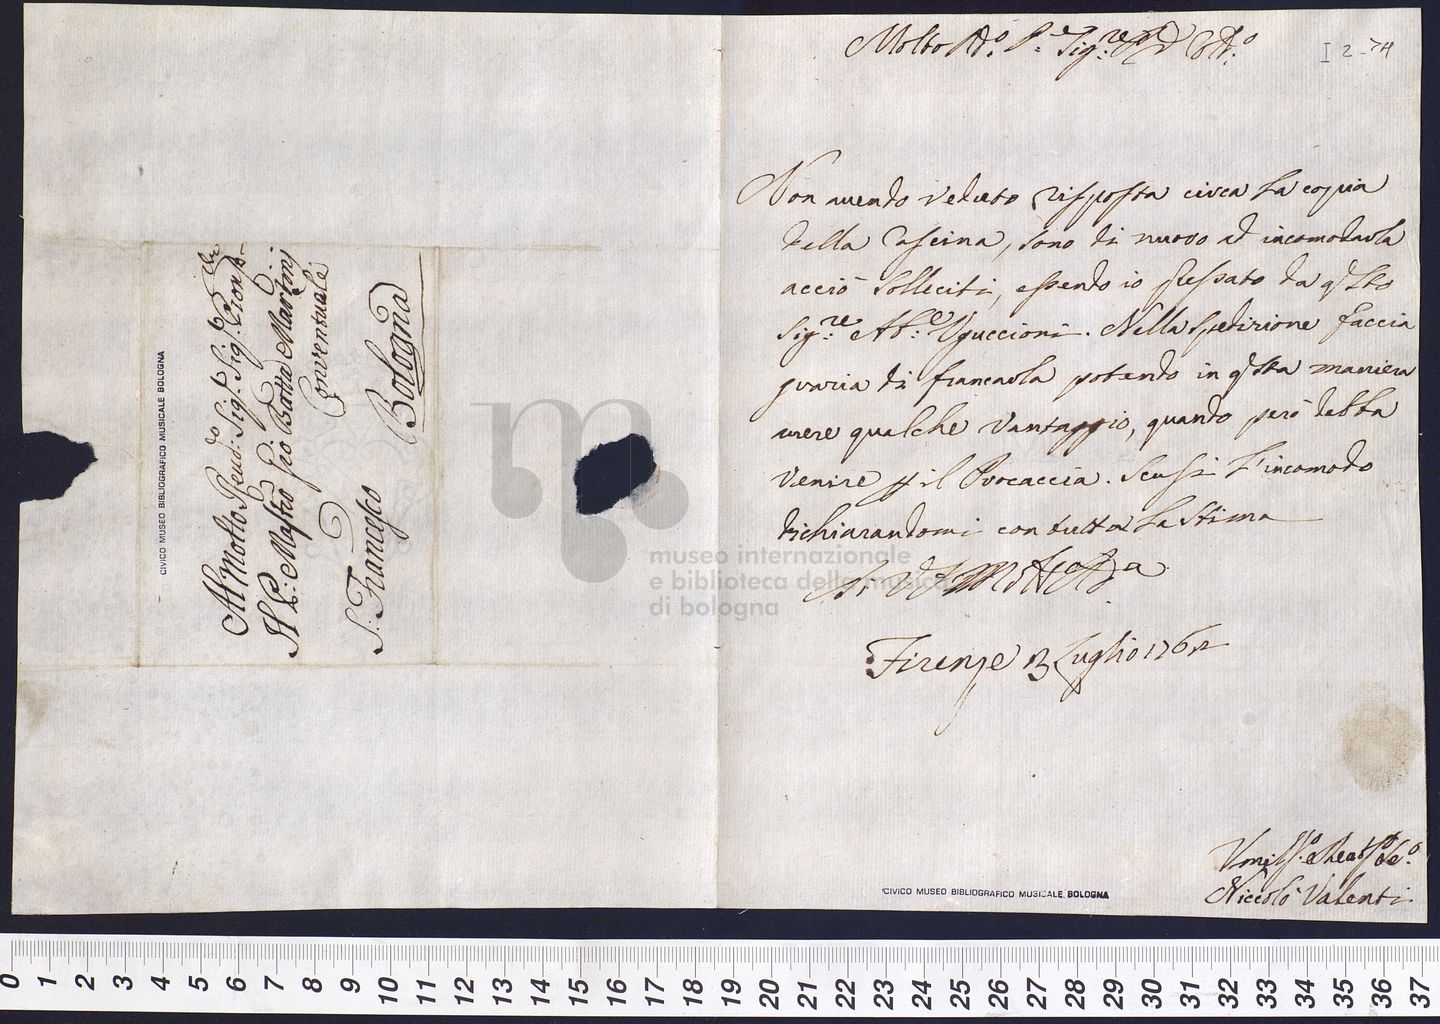 Al Molto Reud: Sig.r Sig.r Pron
Il P: Mastro Gio Batta Martini
Conventuale
S: Francesco
Bologna
CIVICO MUSEO BIBLIOGRAFICO MUSICALE BOLOGNA
I 2-74
Molto R.o P.e Sig.re
Non avendo veduto risposta circa la copia
della Cascina, sono di nuovo ad incomodarla
acciò solleciti, essendo io pressato da q.sto
Sig.re Ab.e Uguccioni. Nella spedizione faccia
grazia di francarla potendo in q.sta maniera
avere qualche vantaggio, quando però debba
venire p il Procaccia. Scusi l'incomodo
dichiarandomi con tutta la stima
Firenze 13 Luglio 1762
Niccolò Valenti
CIVICO MUSEO BIBLIOGRAFICO MUSICALE BOLOGNA
museo internazionale
e biblioteca della musica
di bologna
0 1 2 3 4 5 6 7 8 9 10 11 12 13 14 15 16 17 18 19 20 21 22 23 24 25 26 27 28 29 30 31 32 33 34 35 36 37